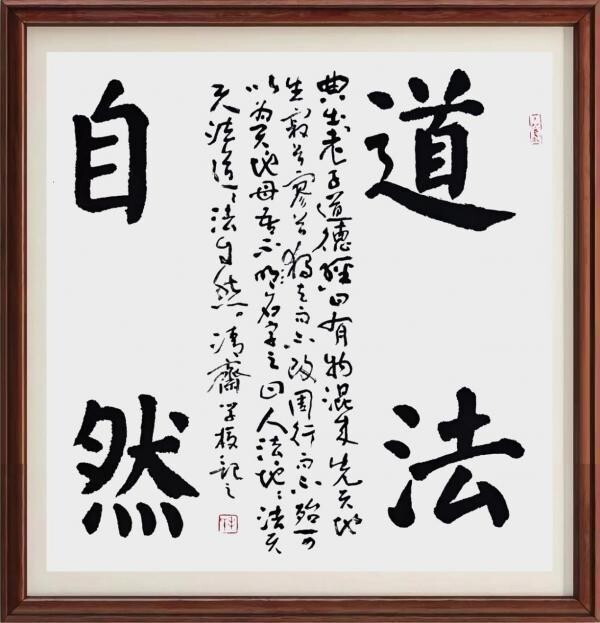 道法
典出老子道德經曰有物混成先天地
生寂兮寥兮獨立而不改周行而不殆可
以为天地母吾不明名字之曰人法地〻法天
天法道〻法自然 齋学記之
自然